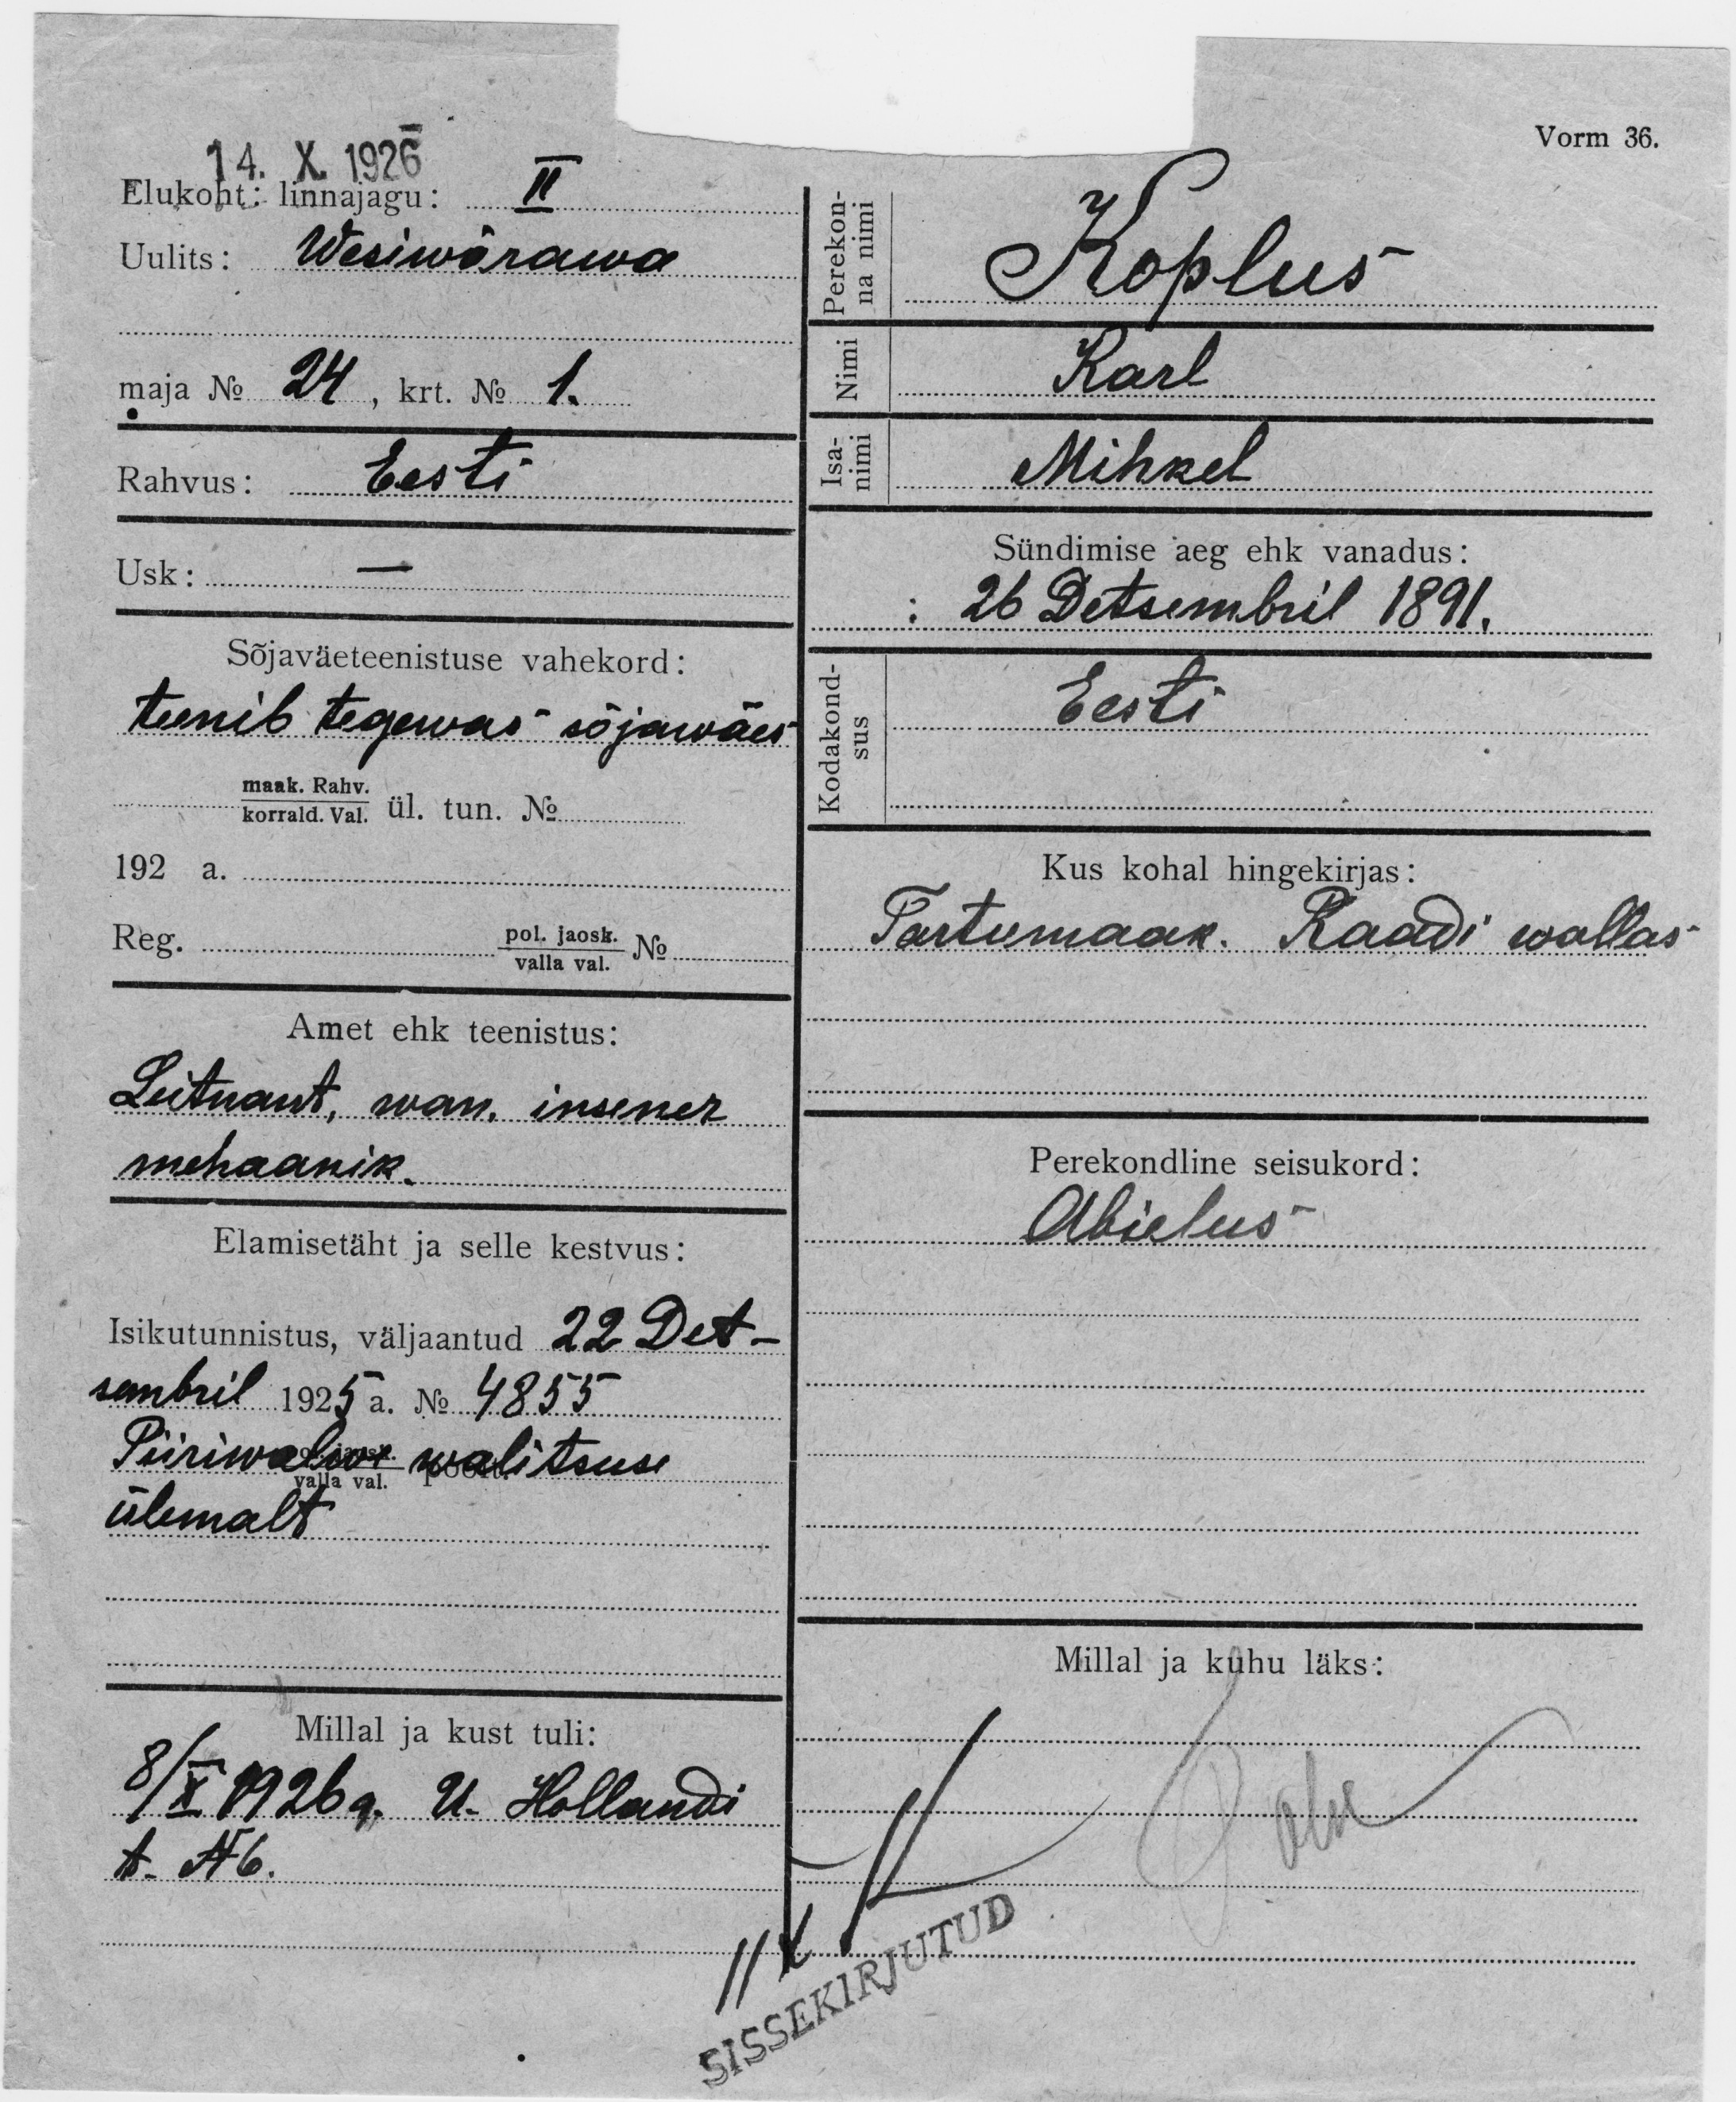 Vorm 36.
14. X. 1926
Elukoht: linnajagu: II
Uulits: Wesiwärawa
maja № 24, krt. № 1.
Rahvus: Eesti
Usk: —
Sõjaväeteenistuse vahekord:
teenib tegewas sõjawäes
maak. Rahv.
korrald. Val. ül. tun. №
192 a.
Reg. pol. jaosk. №
valla val.
Amet ehk teenistus:
Leitnant, wan. insener
mehaanik.
Elamisetäht ja selle kestvus:
Isikutunnistus, väljaantud 22 Det-
sembril 1925 a. № 4855
Piiriwalwe walitsuse
valla val. poolt.
ülemalt
Millal ja kust tuli:
8/X 1926 a. U. Hollandi
t. № 6.
Perekon-
na nimi Koplus
Nimi Karl
Isa-
nimi Mihkel
Sündimise aeg ehk vanadus:
26 Detsembril 1891.
Kodakond-
sus Eesti
Kus kohal hingekirjas:
Tartumaak. Raadi wallas
Perekondline seisukord:
Abielus
Millal ja kuhu läks:
SISSEKIRJUTUD